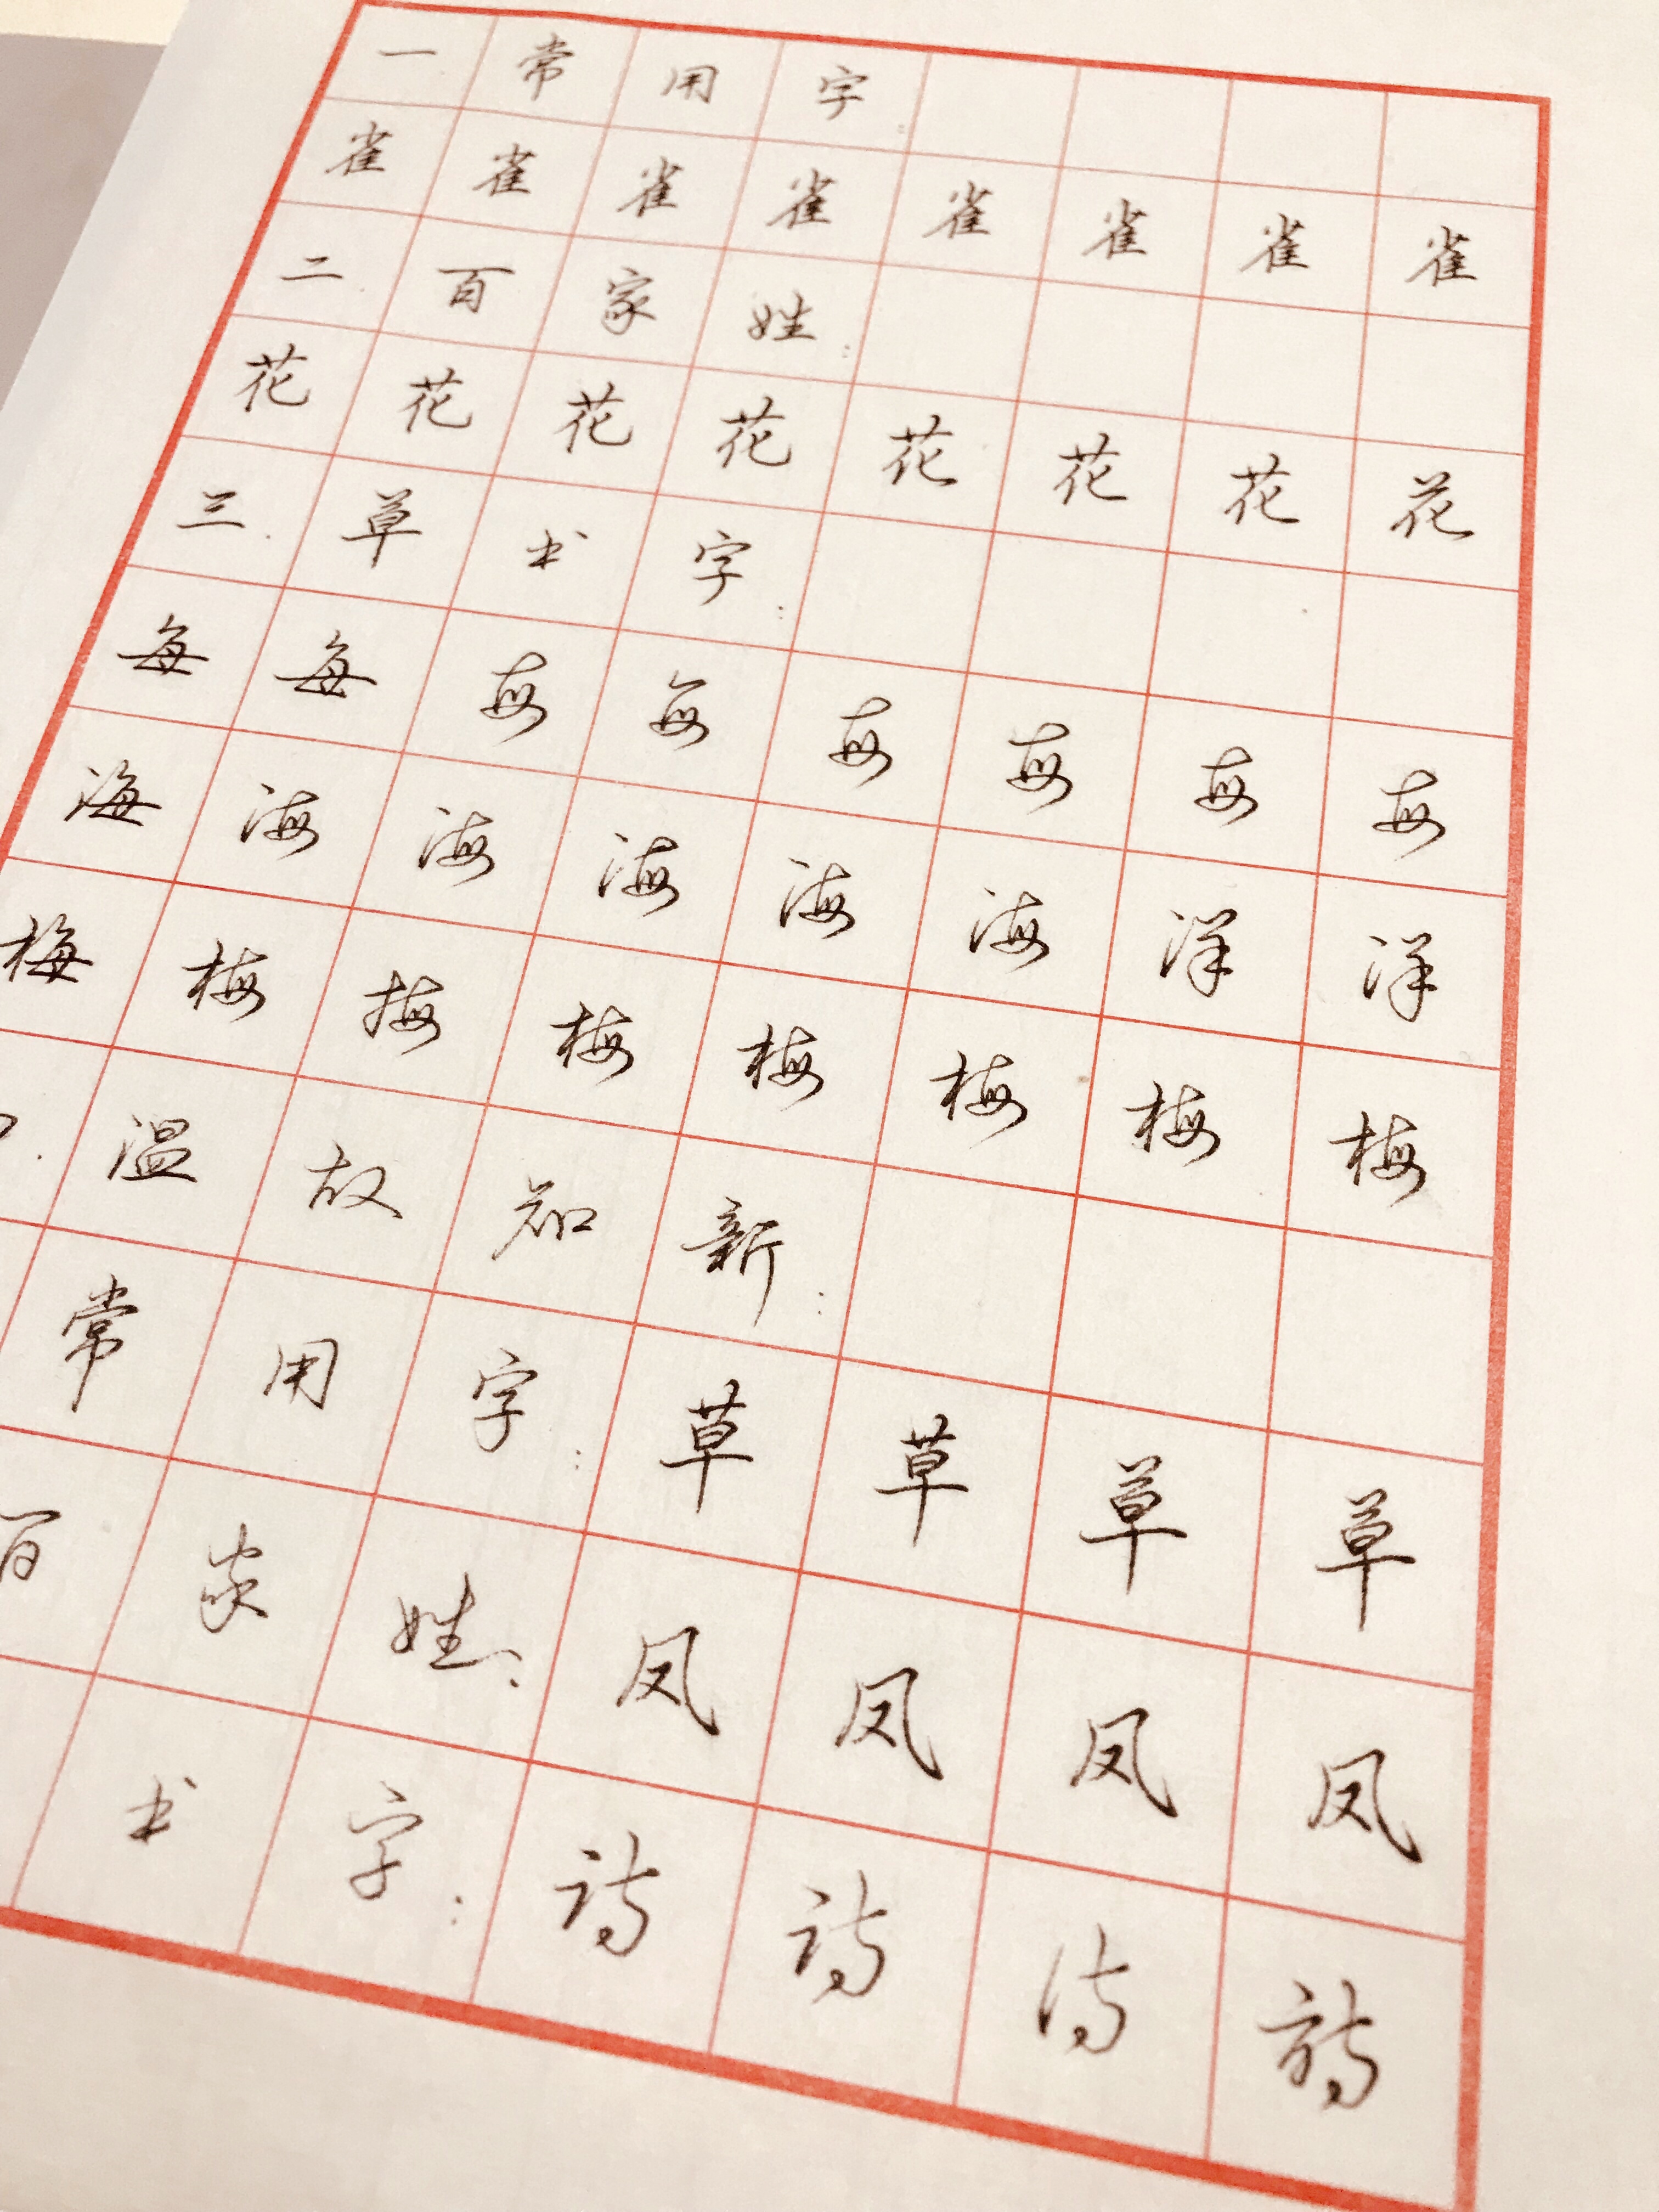 一常用字：
雀雀雀雀雀雀雀雀
二百家姓：
花花花花花花花花
三.草书字：
每每每每每每每每
海海海海海海洋洋
梅梅梅梅梅梅梅梅
温故知新：
常用字：草草草草
百家姓：凤凤凤凤
书字：诗诗诗诗